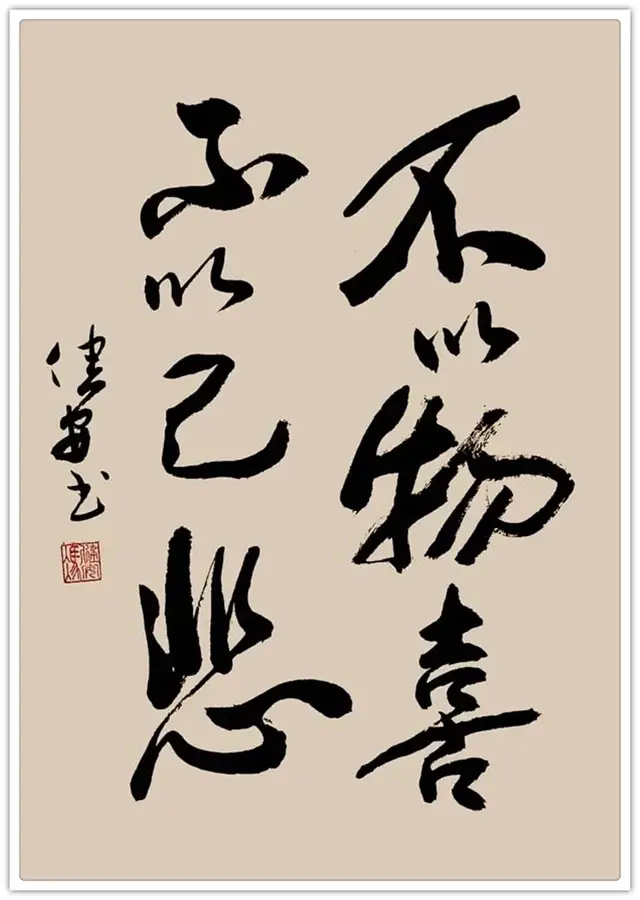 不以物喜
不以己悲
安书